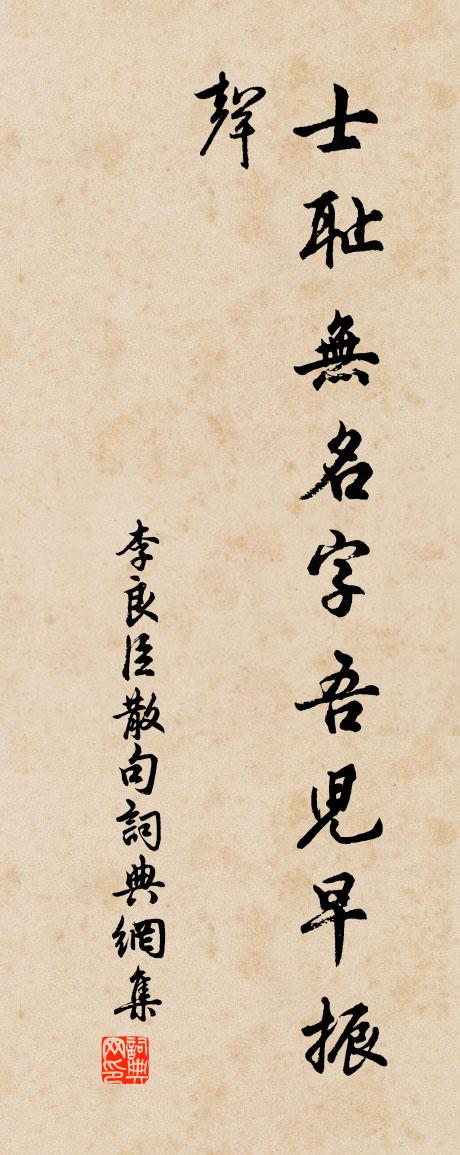 士耻無名字吾兒早振
聲
李良臣散句詞典網集
詞典
网印